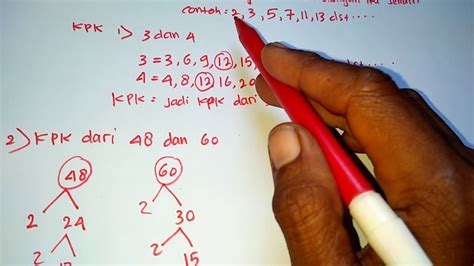 contoh: 2, 3, 5, 7, 11, 13 dst....
KPK 1) 3 dan 4
3 = 3, 6, 9, 12, 15,
4 = 4, 8, 12 16, 20
KPK = jadi KPK dari
2) KPK dari 48 dan 60
48 60
2 24 2 30
2 15